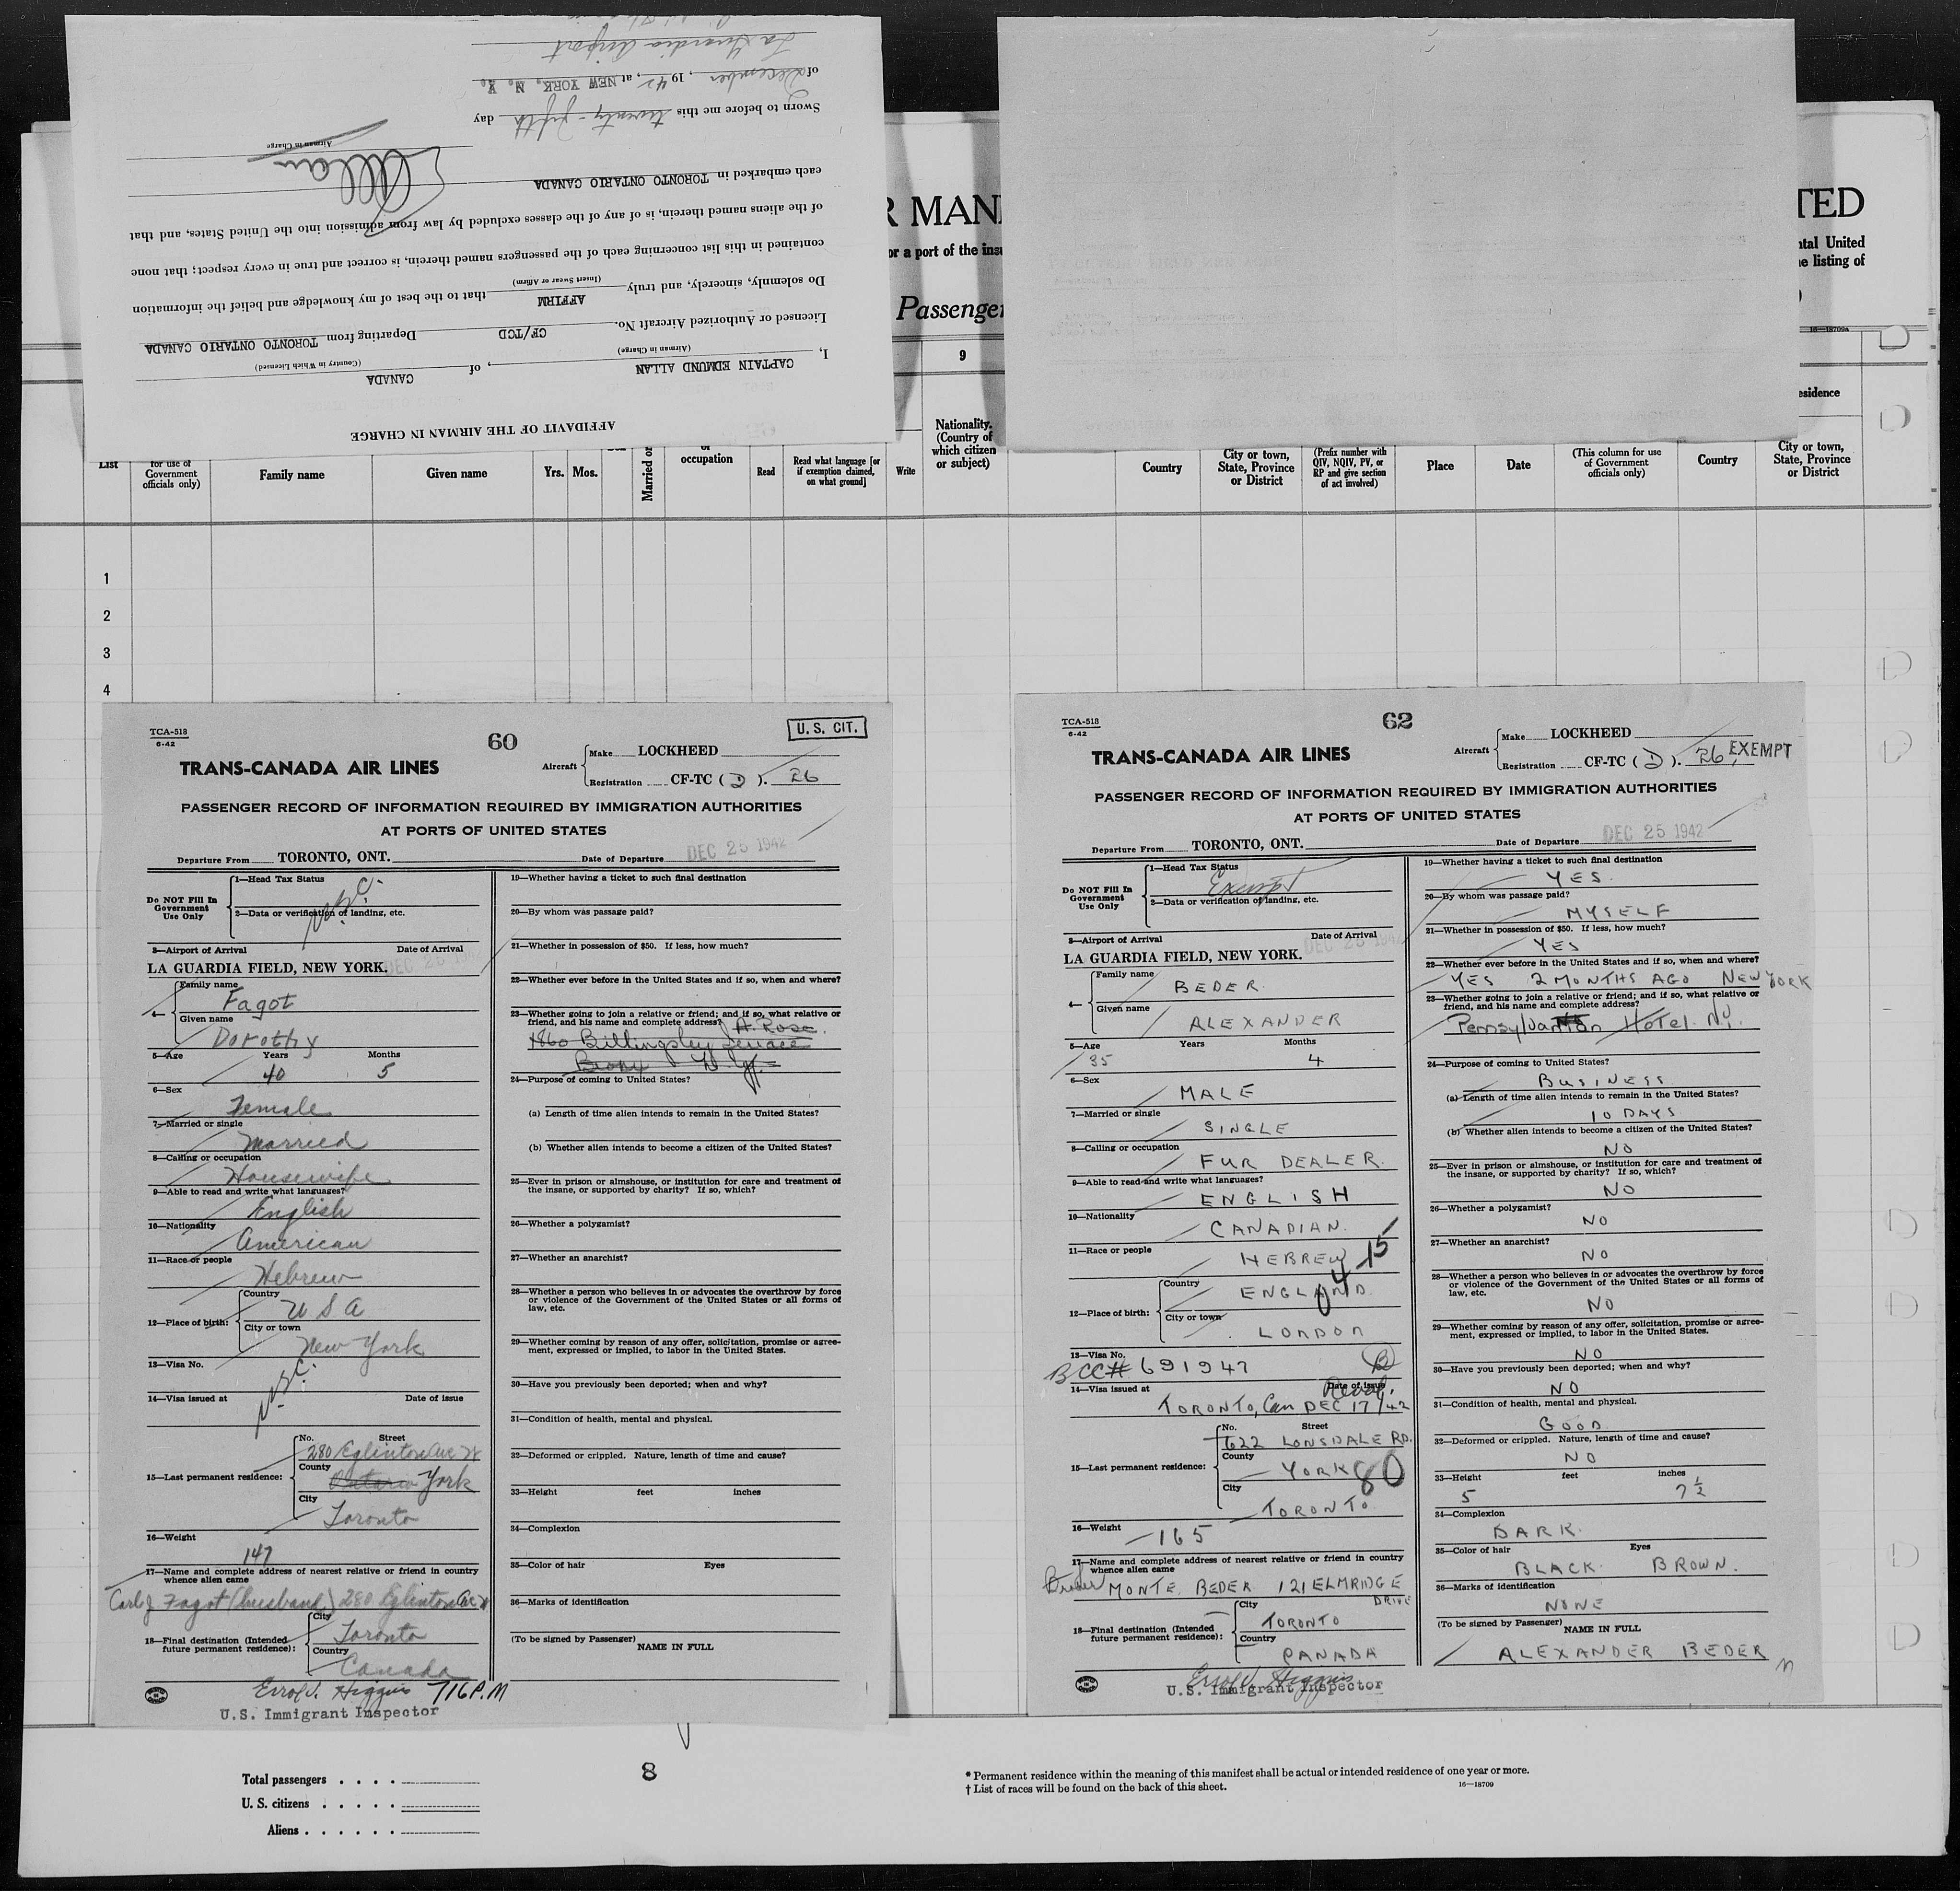 AFFIDAVIT OF THE AIRMAN IN CHARGE
I, CAPTAIN EDMUND ALLAN, of CANADA
(Airman in Charge) (Country in Which Licensed)
Licensed or Authorized Aircraft No. CF/TCD Departing from TORONTO ONTARIO CANADA
Do solemnly, sincerely, and truly AFFIRM that to the best of my knowledge and belief the information
(Insert Swear or Affirm)
contained in this list concerning each of the passengers named therein, is correct and true in every respect; that none
of the aliens named therein, is of any of the classes excluded by law from admission into the United States, and that
each embarked in TORONTO ONTARIO CANADA
Allan
Airman in Charge
Sworn to before me this twenty-fifth day
of December, 1942, at NEW YORK, N. Y.
La Guardia Airport
R MAN
or a port of the insu
Passenger
9
Nationality.
(Country of
which citizen
or subject)
TED
ntal United
he listing of
16—18709a
esidence
List
for use of
Government
officials only)
Family name
Given name
Yrs.
Mos.
Married or
or
occupation
Read
Read what language [or
if exemption claimed,
on what ground]
Write
Country
City or town,
State, Province
or District
(Prefix number with
QIV, NQIV, PV, or
RP and give section
of act involved)
Place
Date
(This column for use
of Government
officials only)
Country
City or town,
State, Province
or District
1
2
3
4
TCA-518
6-42
60
U. S. CIT.
TRANS-CANADA AIR LINES
Aircraft
Make LOCKHEED
Registration CF-TC ( D ). 26
PASSENGER RECORD OF INFORMATION REQUIRED BY IMMIGRATION AUTHORITIES
AT PORTS OF UNITED STATES
Departure From TORONTO, ONT. Date of Departure DEC 25 1942
Do NOT Fill In
Government
Use Only
1—Head Tax Status
2—Data or verification of landing, etc.
3—Airport of Arrival Date of Arrival
LA GUARDIA FIELD, NEW YORK. DEC 25 1942
4— Family name
Fagot
Given name
Dorothy
5—Age Years Months
40 5
6—Sex
Female
7—Married or single
Married
8—Calling or occupation
Housewife
9—Able to read and write what languages?
English
10—Nationality
American
11—Race or people
Hebrew
12—Place of birth:
Country
U S A
City or town
New York
13—Visa No.
14—Visa issued at Date of issue
15—Last permanent residence:
No. Street
280 Eglinton Ave W
County
Ontario York
City
Toronto
16—Weight
147
17—Name and complete address of nearest relative or friend in country
whence alien came
Carl J. Fagot (husband) 280 Eglinton Ave W
18—Final destination (Intended
future permanent residence):
City
Toronto
Country
Canada
Errol J. Higgins 716 P.M
U.S. Immigrant Inspector
19—Whether having a ticket to such final destination
20—By whom was passage paid?
21—Whether in possession of $50. If less, how much?
22—Whether ever before in the United States and if so, when and where?
23—Whether going to join a relative or friend; and if so, what relative or
friend, and his name and complete address? A. Rose.
1860 Billingsley Terrace
Bronx N. Y.
24—Purpose of coming to United States?
(a) Length of time alien intends to remain in the United States?
(b) Whether alien intends to become a citizen of the United States?
25—Ever in prison or almshouse, or institution for care and treatment of
the insane, or supported by charity? If so, which?
26—Whether a polygamist?
27—Whether an anarchist?
28—Whether a person who believes in or advocates the overthrow by force
or violence of the Government of the United States or all forms of
law, etc.
29—Whether coming by reason of any offer, solicitation, promise or agree-
ment, expressed or implied, to labor in the United States.
30—Have you previously been deported; when and why?
31—Condition of health, mental and physical.
32—Deformed or crippled. Nature, length of time and cause?
33—Height feet inches
34—Complexion
35—Color of hair Eyes
36—Marks of identification
(To be signed by Passenger)
NAME IN FULL
TCA-518
6-42
62
TRANS-CANADA AIR LINES
Aircraft
Make LOCKHEED
Registration CF-TC ( D ). 26, EXEMPT
PASSENGER RECORD OF INFORMATION REQUIRED BY IMMIGRATION AUTHORITIES
AT PORTS OF UNITED STATES
Departure From TORONTO, ONT. Date of Departure DEC 25 1942
Do NOT Fill In
Government
Use Only
1—Head Tax Status
Exempt
2—Data or verification of landing, etc.
3—Airport of Arrival Date of Arrival
LA GUARDIA FIELD, NEW YORK. DEC 25 1942
4— Family name
BEDER
Given name
ALEXANDER
5—Age Years Months
35 4
6—Sex
MALE
7—Married or single
SINGLE
8—Calling or occupation
FUR DEALER.
9—Able to read and write what languages?
ENGLISH
10—Nationality
CANADIAN.
11—Race or people
HEBREW 15
12—Place of birth:
Country
ENGLAND.
City or town
LONDON
13—Visa No.
BCC# 691947
14—Visa issued at Date of issue
TORONTO, Can DEC 17/42
15—Last permanent residence:
No. Street
622 LONSDALE RD.
County
YORK 80
City
TORONTO.
16—Weight
165
17—Name and complete address of nearest relative or friend in country
whence alien came
MONTE BEDER 121 ELMRIDGE
DRIVE
18—Final destination (Intended
future permanent residence):
City
TORONTO
Country
CANADA
Errol J. Higgins
U.S. Immigrant Inspector
19—Whether having a ticket to such final destination
YES.
20—By whom was passage paid?
MYSELF
21—Whether in possession of $50. If less, how much?
YES
22—Whether ever before in the United States and if so, when and where?
YES 2 MONTHS AGO NEW YORK
23—Whether going to join a relative or friend; and if so, what relative or
friend, and his name and complete address?
Hotel N.Y.
24—Purpose of coming to United States?
BUSINESS
(a) Length of time alien intends to remain in the United States?
10 DAYS
(b) Whether alien intends to become a citizen of the United States?
NO
25—Ever in prison or almshouse, or institution for care and treatment of
the insane, or supported by charity? If so, which?
NO
26—Whether a polygamist?
NO
27—Whether an anarchist?
NO
28—Whether a person who believes in or advocates the overthrow by force
or violence of the Government of the United States or all forms of
law, etc.
NO
29—Whether coming by reason of any offer, solicitation, promise or agree-
ment, expressed or implied, to labor in the United States.
NO
30—Have you previously been deported; when and why?
NO
31—Condition of health, mental and physical.
GOOD
32—Deformed or crippled. Nature, length of time and cause?
NO
33—Height feet inches
5 7 1/2
34—Complexion
DARK.
35—Color of hair Eyes
BLACK. BROWN.
36—Marks of identification
NONE
(To be signed by Passenger)
NAME IN FULL
ALEXANDER BEDER
Total passengers . . . .
U. S. citizens . . . . .
Aliens . . . . . .
8
* Permanent residence within the meaning of this manifest shall be actual or intended residence of one year or more.
† List of races will be found on the back of this sheet.
16—18709